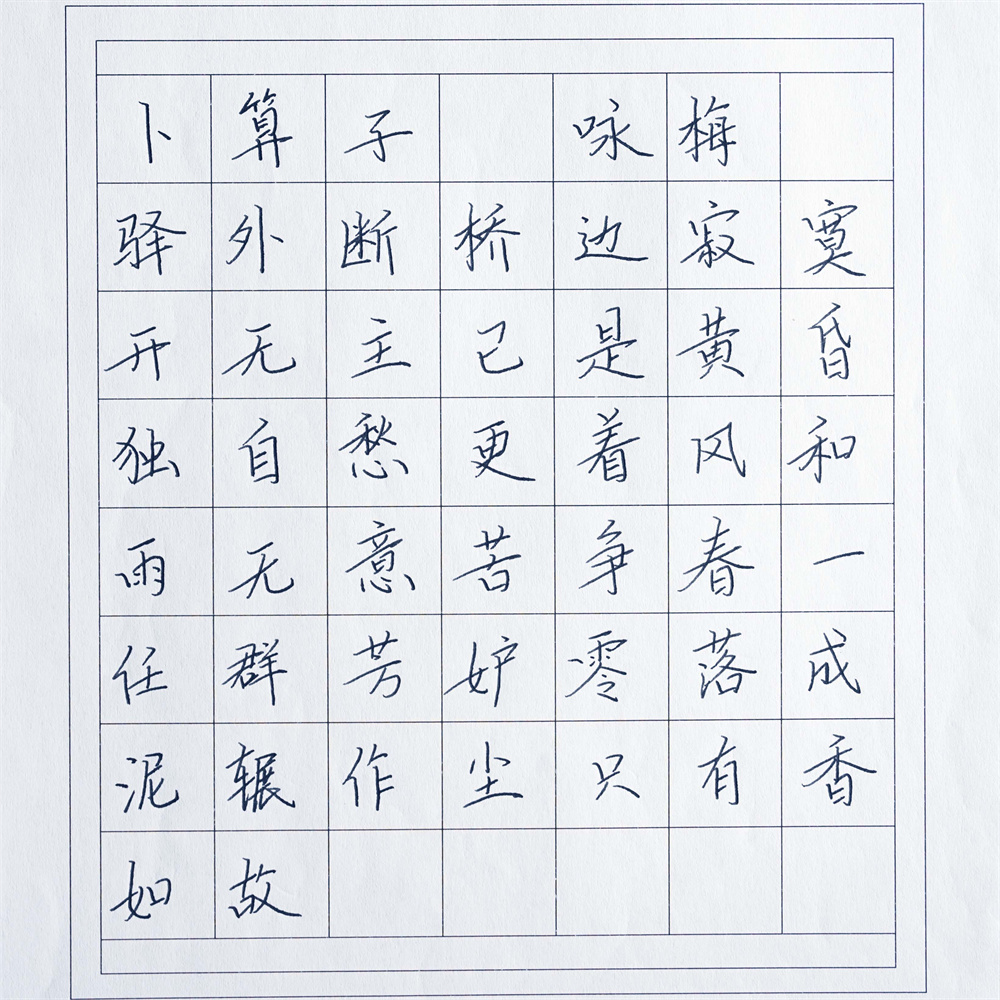 卜算子 咏梅
驿外断桥边寂寞
开无主已是黄昏
独自愁更着风和
雨无意苦争春一
任群芳妒零落成
泥辗作尘只有香
如故